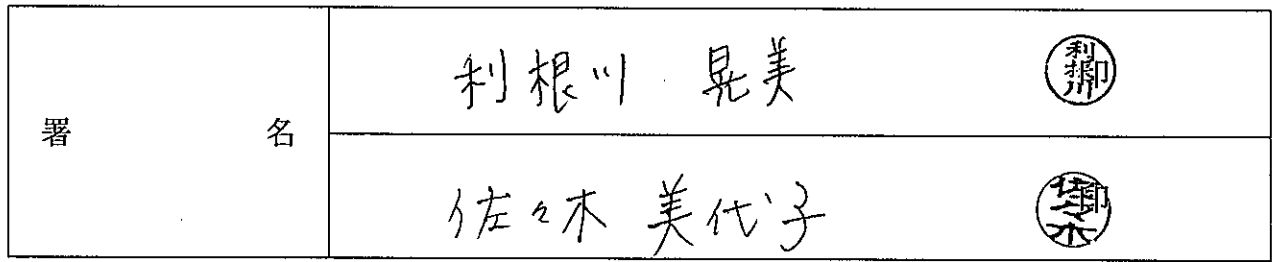 署名
利根川 晃美
利根川
印
佐々木 美代子
佐々木
印